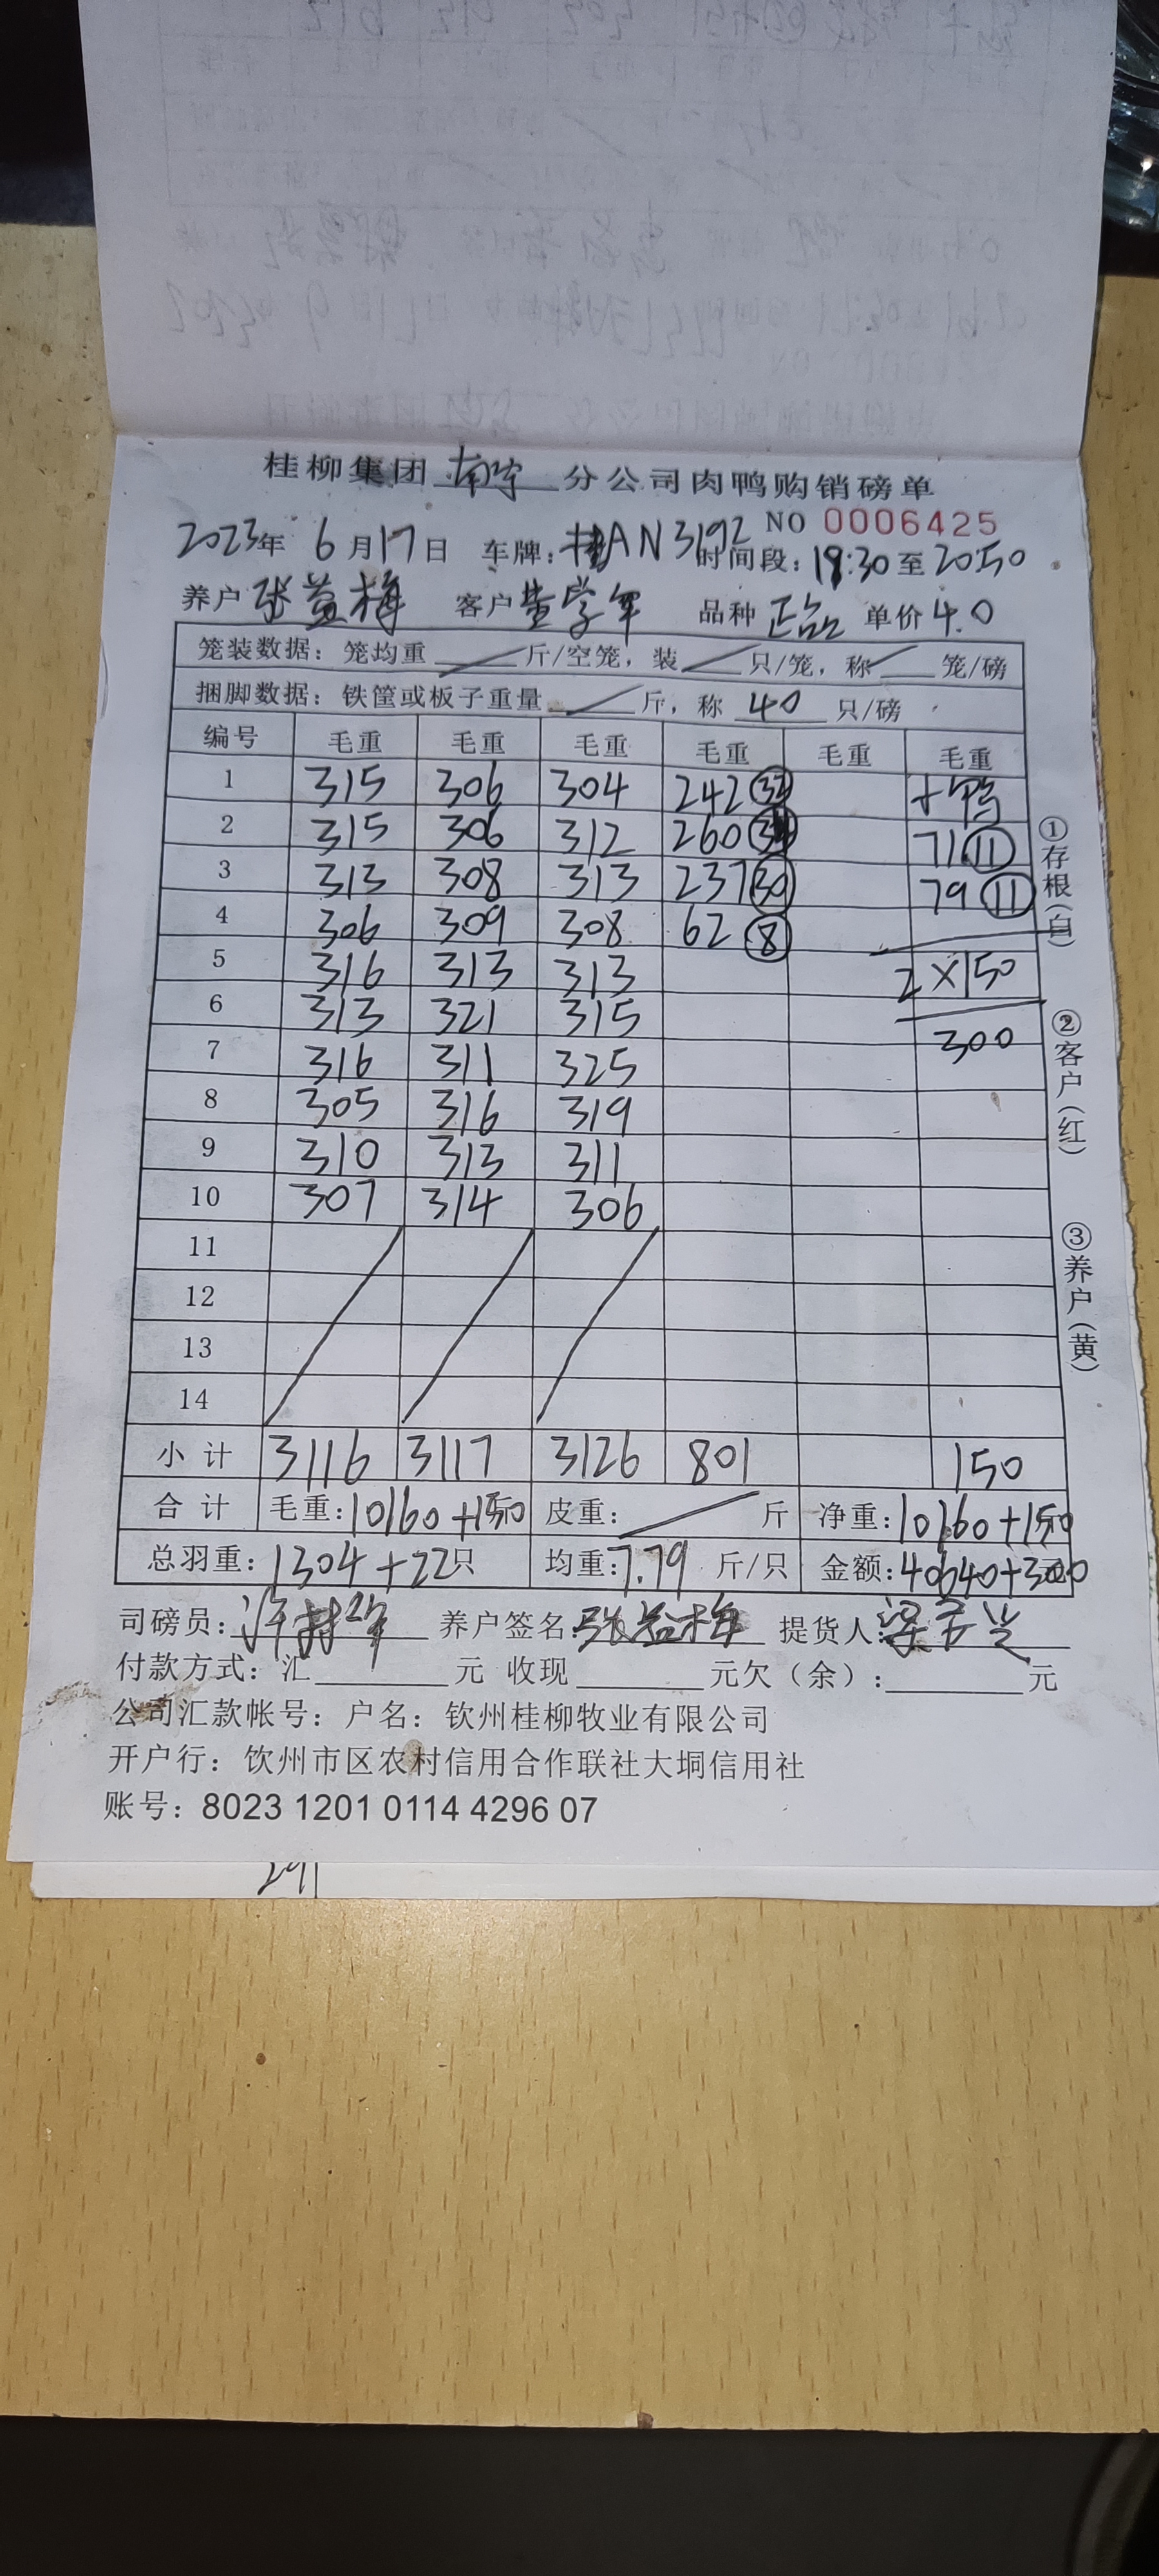 桂柳集团 南宁 分公司肉鸭购销磅单
NO 0006425
2023年 6月17日 车牌：桂AN3192 时间段：18:30至20:50
养户 张益梅 客户 黄学军 品种 正品 单价 4.0
笼装数据：笼均重 斤/空笼，装 只/笼，称 笼/磅
捆脚数据：铁筐或板子重量 斤，称 40 只/磅
编号 毛重 毛重 毛重 毛重 毛重 毛重
1 315 306 304 242 + 鸭
2 315 306 312 260 71 ⑪
3 313 308 313 237 ㉚ 79 ⑪
4 306 309 308 62 ⑧
5 316 313 313 2×150
6 313 321 315 300
7 316 311 325
8 305 316 319
9 310 313 311
10 307 314 306
11
12
13
14
小计 3116 3117 3126 801 150
合计 毛重：10160+150 皮重： 斤 净重：10160+150
总羽重：1304+22只 均重：7.79 斤/只 金额：40640+300
司磅员： 养户签名：张益梅 提货人：
付款方式：汇 元 收现 元欠（余）： 元
公司汇款帐号：户名：钦州桂柳牧业有限公司
开户行：钦州市区农村信用合作联社大垌信用社
账号：8023 1201 0114 4296 07
①存根（白）
②客户（红）
③养户（黄）
291